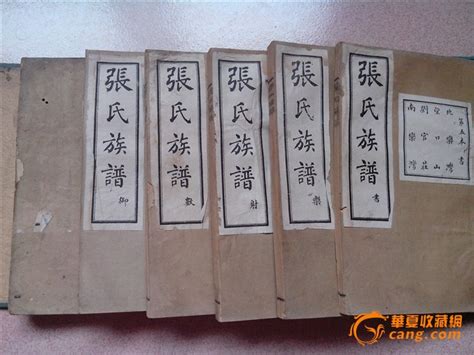 第五本 書
北欒灣
口山
劉官莊
南欒灣
張氏族譜 書
張氏族譜 樂
張氏族譜 射
張氏族譜 數
張氏族譜 御
華夏收藏網
cang.com